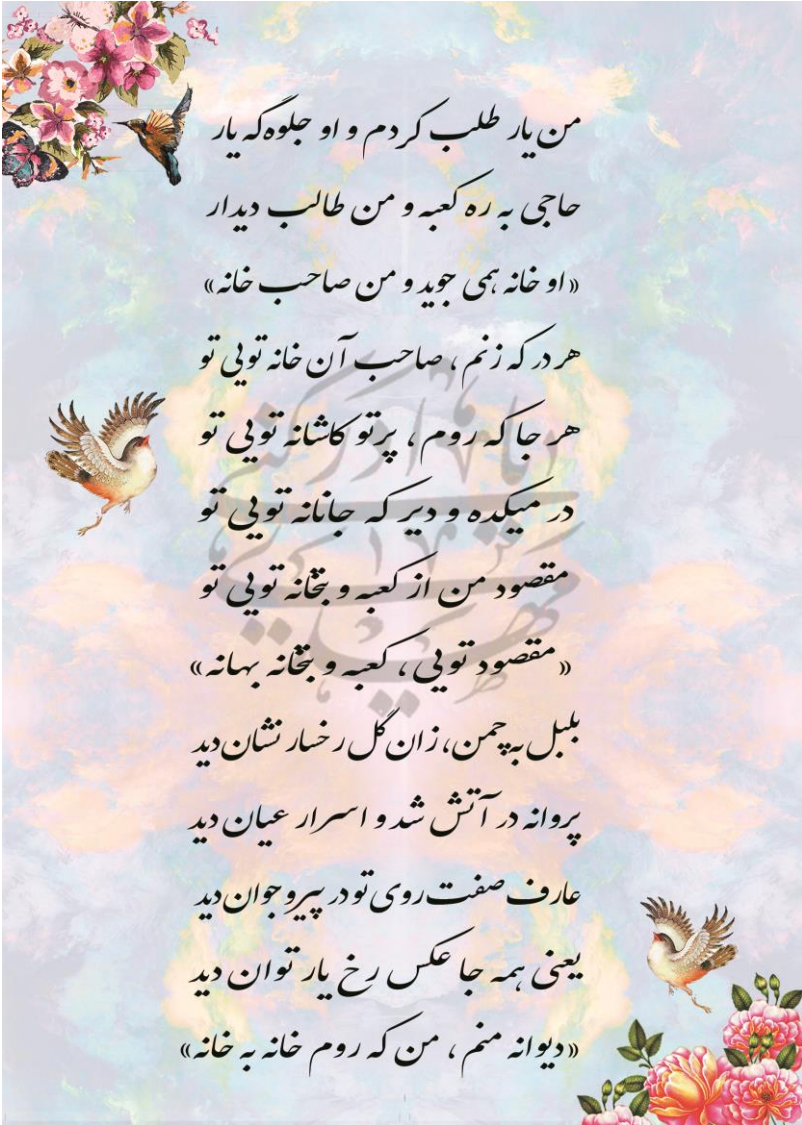 من یار طلب کردم و او جلوه‌گه یار
حاجی به ره کعبه و من طالب دیدار
«او خانه همی جوید و من صاحب خانه»
هر در که زنم، صاحب آن خانه تویی تو
هر جا که روم، پرتو کاشانه تویی تو
در میکده و دیر که جانانه تویی تو
مقصود من از کعبه و بتخانه تویی تو
«مقصود تویی، کعبه و بتخانه بهانه»
بلبل به چمن، زان گل رخسار نشان دید
پروانه در آتش شد و اسرار عیان دید
عارف صفت روی تو در پیر و جوان دید
یعنی همه جا عکس رخ یار توان دید
«دیوانه منم، من که روم خانه به خانه»